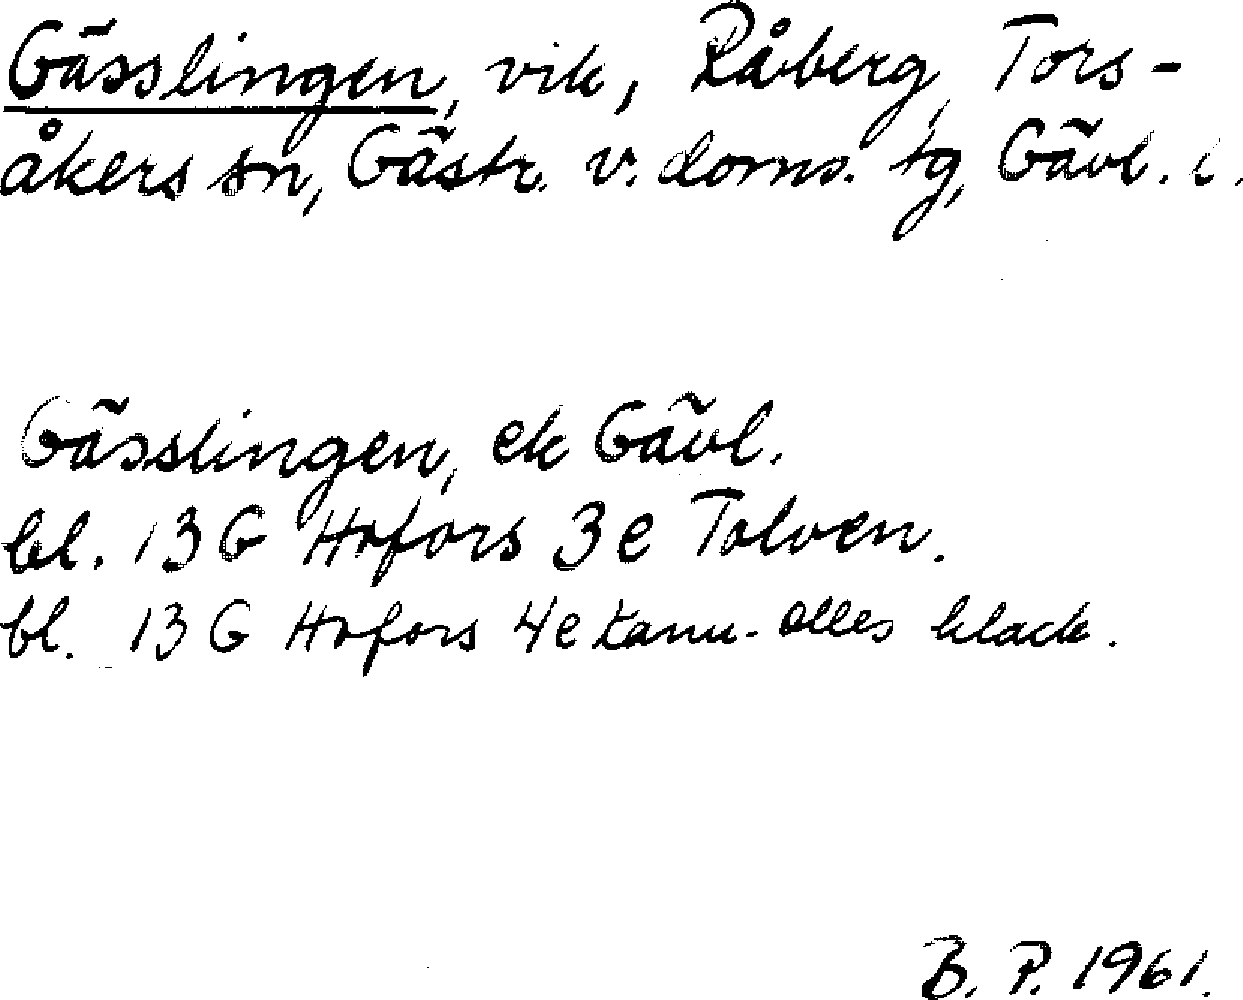 Gässlingen, vik, Råberg, Tors-
åkers sn, Gästr. v. doms. tg, Gävl. l.
Gässlingen, ek Gävl.
bl. 13 G Hofors 3e Tolven.
bl. 13 G Hofors 4e klack.
B. P. 1961.